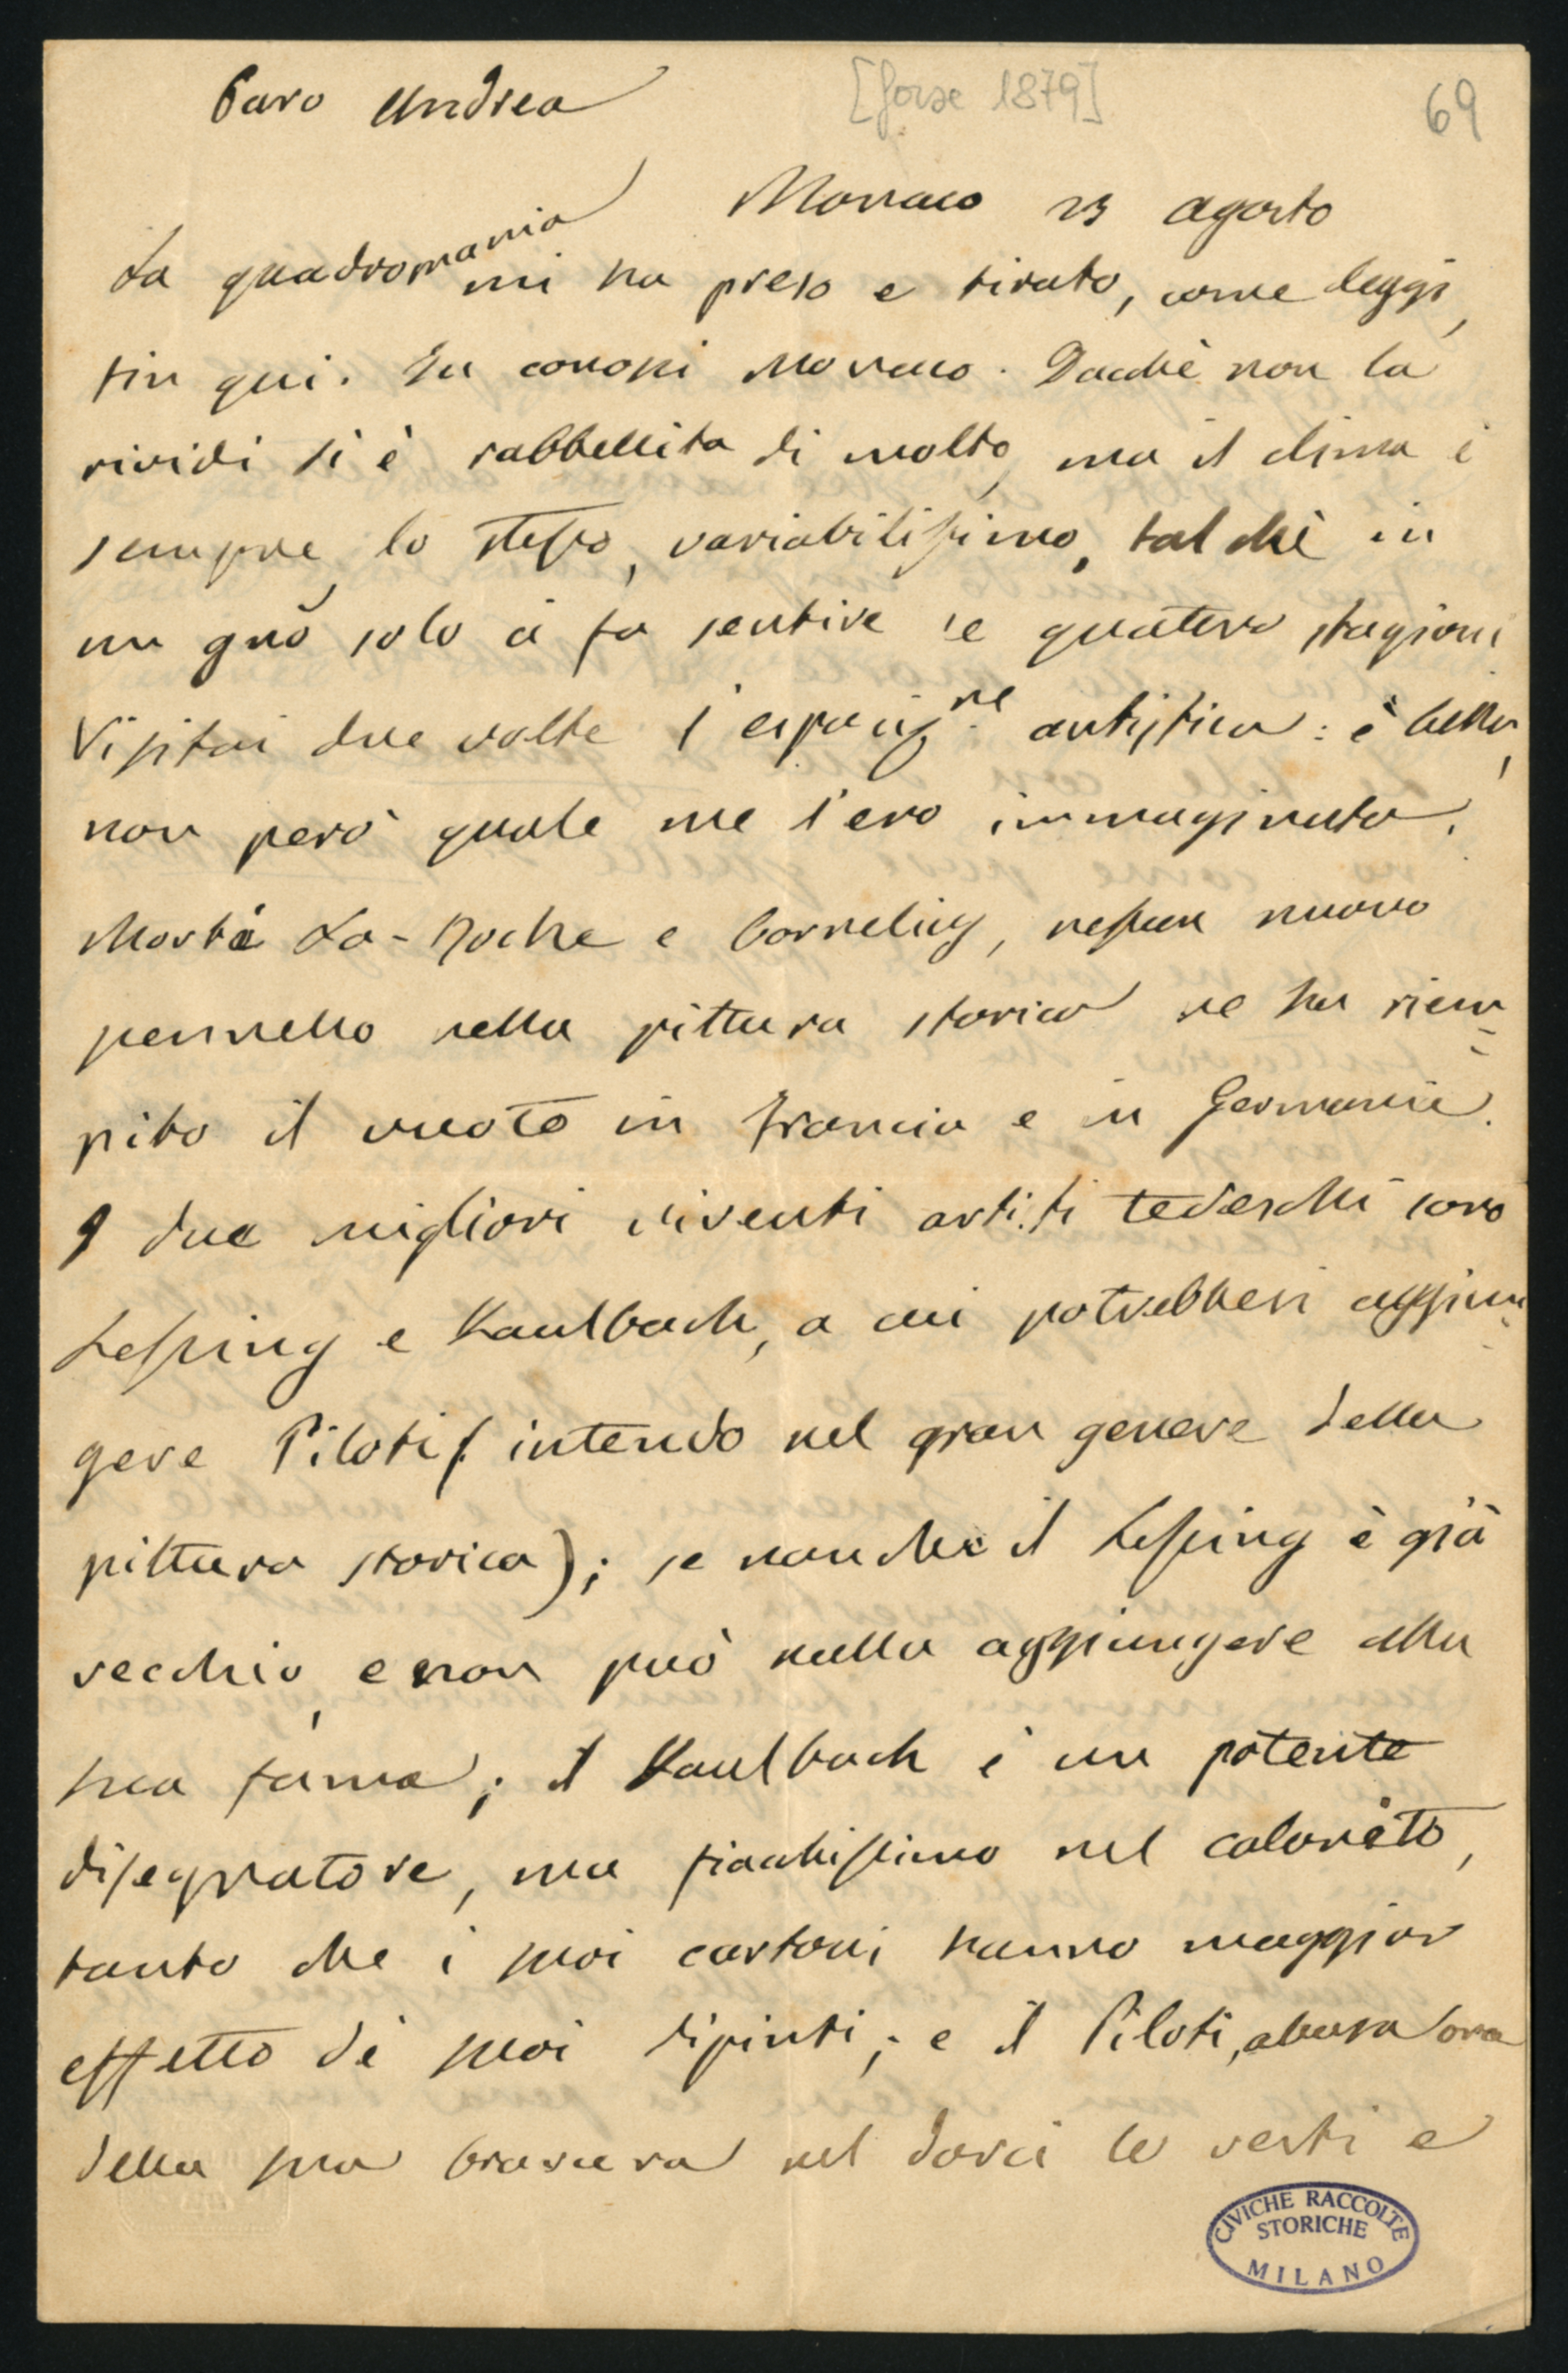 Caro Andrea
[forse 1879]
69
Monaco 23 agosto
La quadromania mi ha preso e tirato, come leggi,
fin qui. Tu conosci Monaco. Dacchè non la
rividi si è rabbellita di molto, ma il clima è
sempre lo stesso, variabilissimo, tal chè in
un gno solo ci fa sentire le quattro stagioni
Visitai due volte l'esposiz.ne artistica: è bella,
non però quale me l'ero immaginata.
Morti La-Roche e Cornelius, nessun nuovo
pennello nella pittura storica ne ha riem=
pito il vuoto in Francia e in Germania.
I due migliori viventi artisti tedeschi sono
Lessing e Kaulbach, a cui potrebbesi aggiun=
gere Piloti (intendo nel gran genere della
pittura storica); se non che il Lessing è già
vecchio, e non può nulla aggiungere alla
sua fama; il Kaulbach è un potente
disegnatore, ma fiacchissimo nel colorito,
tanto che i suoi cartoni hanno maggior
effetto de' suoi dipinti; e il Piloti, abusa ora
della sua bravura nel darci le vesti e
CIVICHE RACCOLTE
STORICHE
MILANO